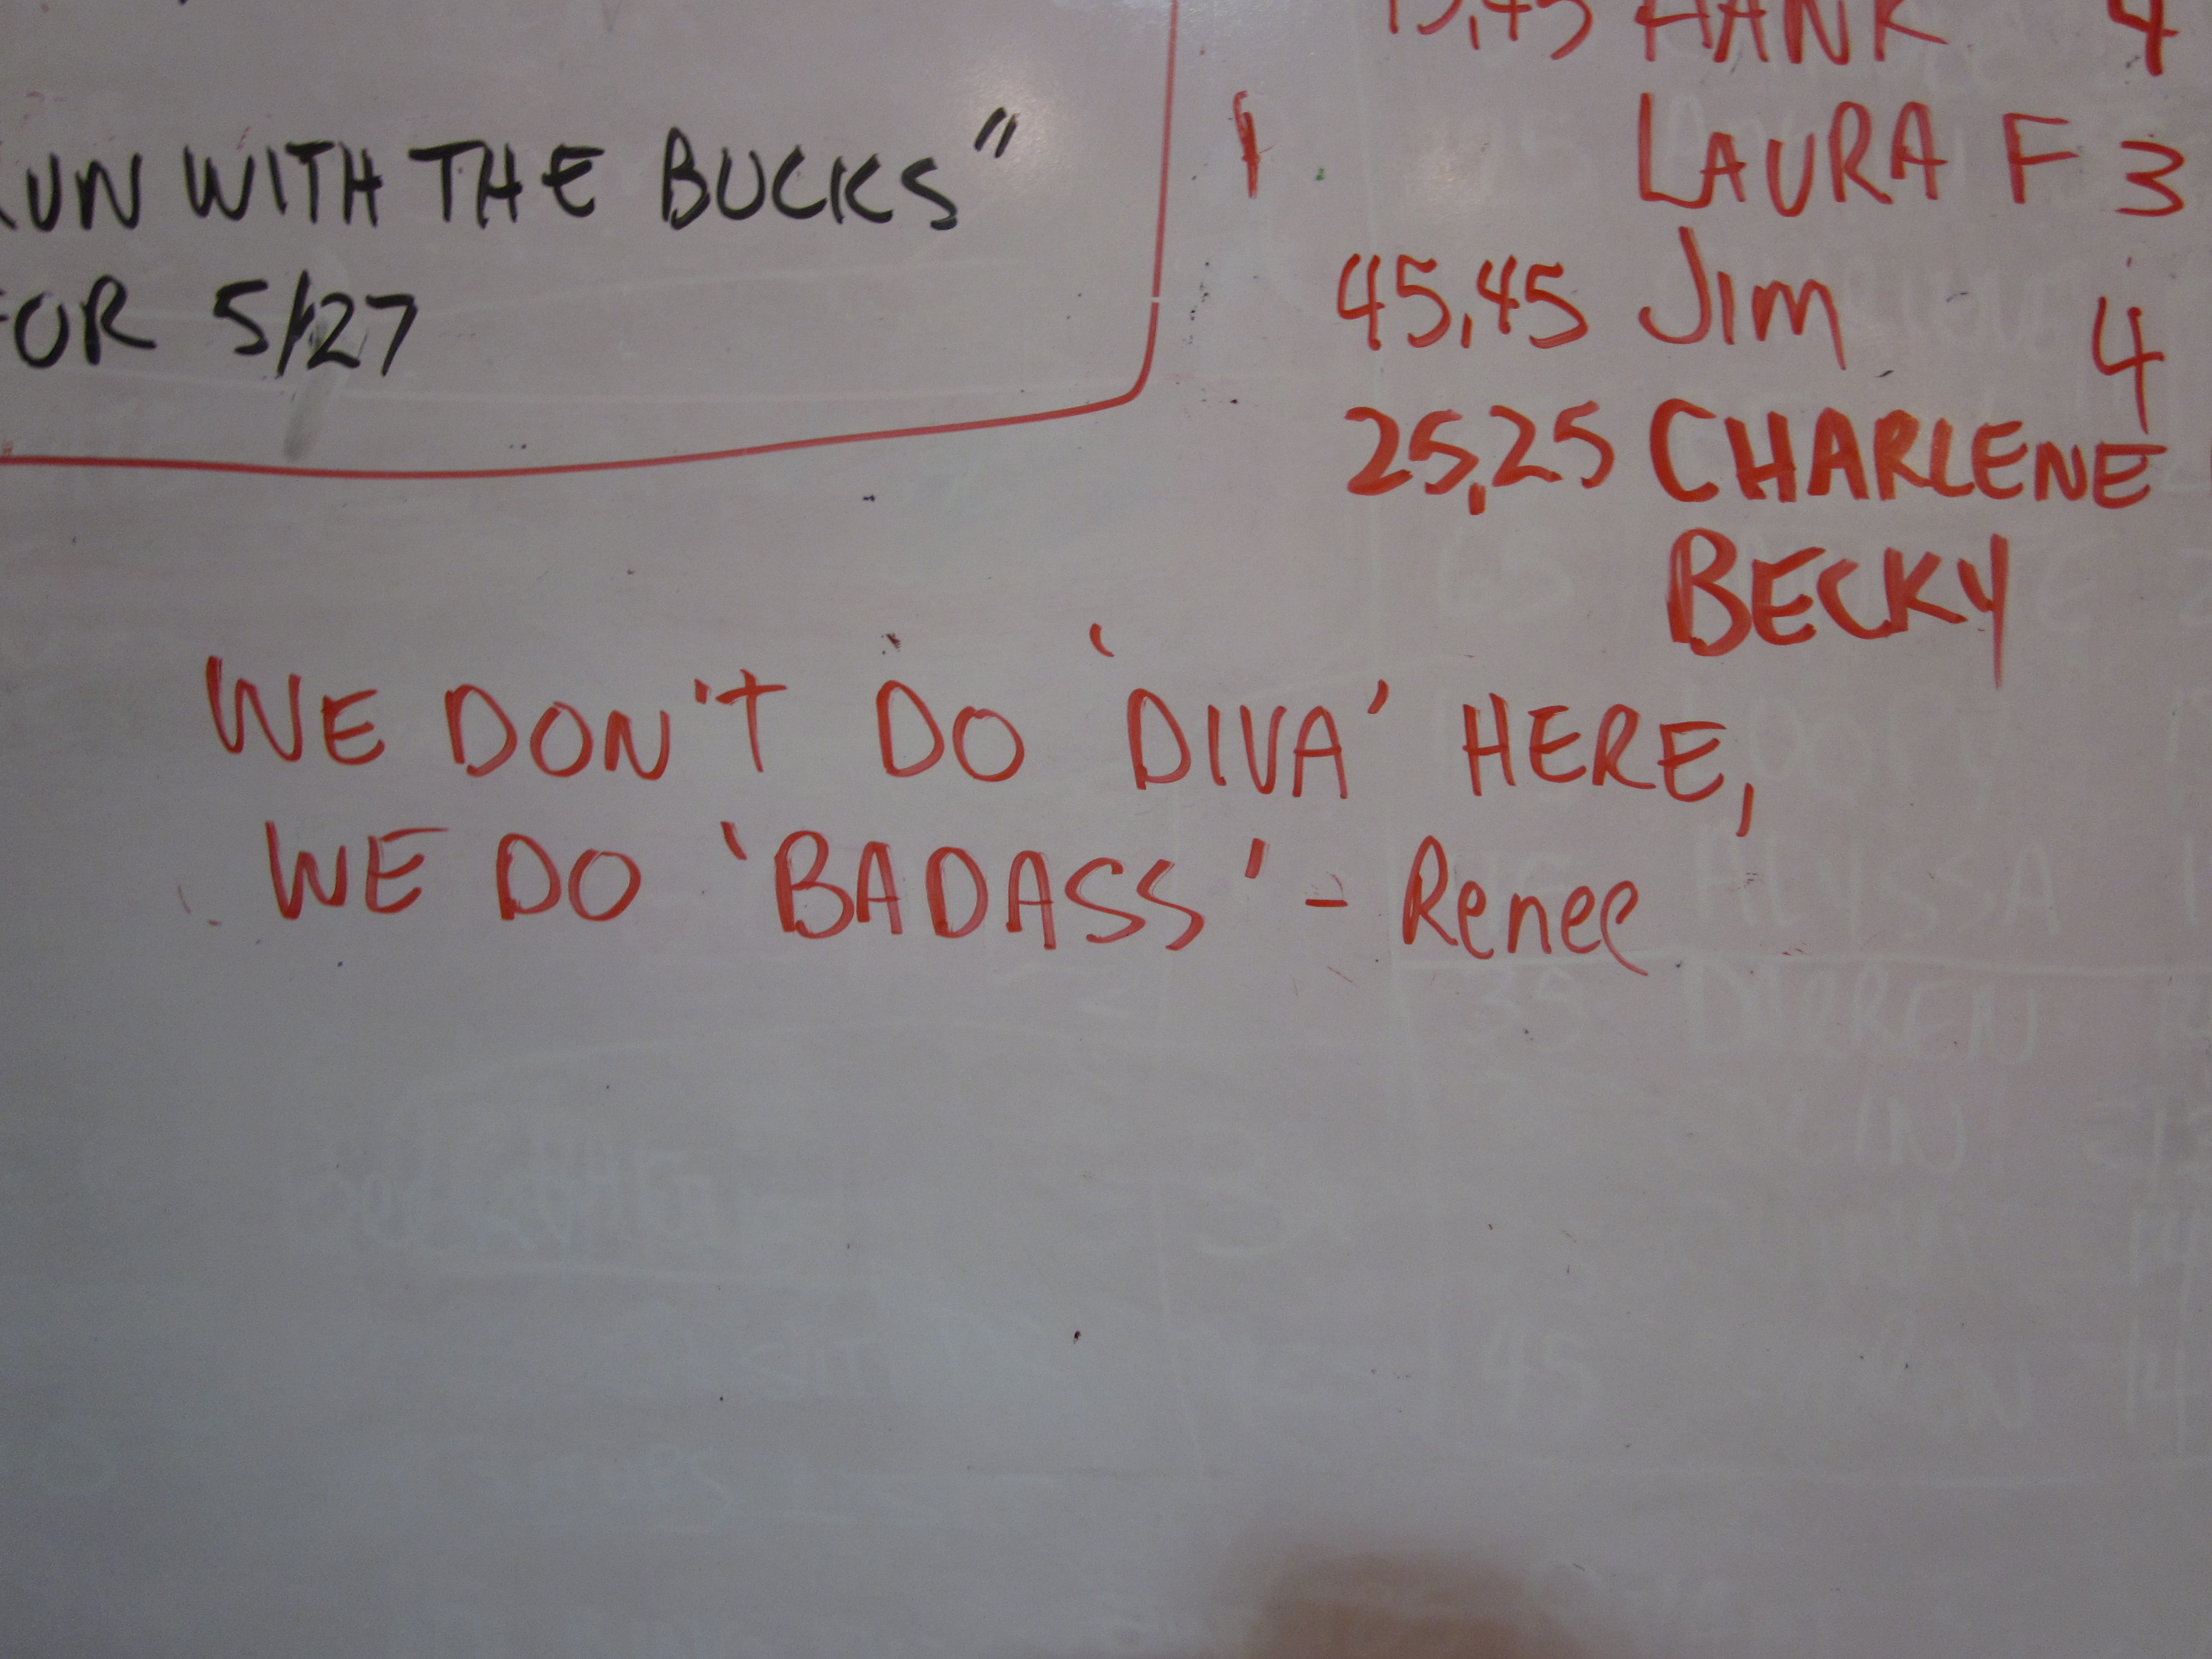 WITH THE BUCKS"
5/27
HANK 4
LAURA F 3
45,45 JIM 4
25,25 CHARLENE
BECKY
WE DON'T DO 'DIVA' HERE,
WE DO 'BADASS' - Renee